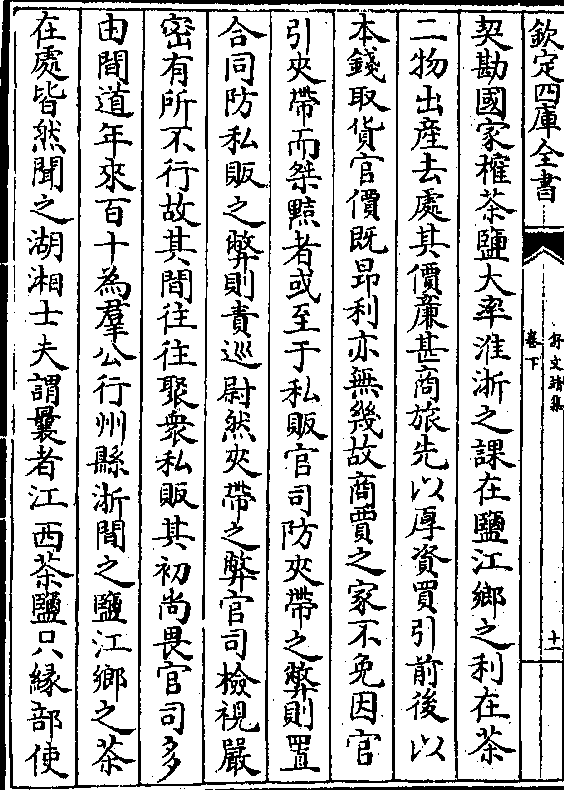 欽定四庫全書
舒文靖集
卷下
十一
契勘國家榷茶鹽大率淮浙之課在鹽江鄉之利在茶
二物出產去處其價廉甚商旅先以厚資買引前後以
本錢取貨官價既昻利亦無幾故商賈之家不免因官
引夾帶而桀黠者或至于私販官司防夾帶之弊則置
合同防私販之弊則責巡尉然夾帶之弊官司檢視嚴
密有所不行故其間往往聚衆私販其初尚畏官司多
由間道年來百十為羣公行州縣浙間之鹽江鄉之茶
在處皆然聞之湖湘士夫謂曩者江西茶鹽只緣部使